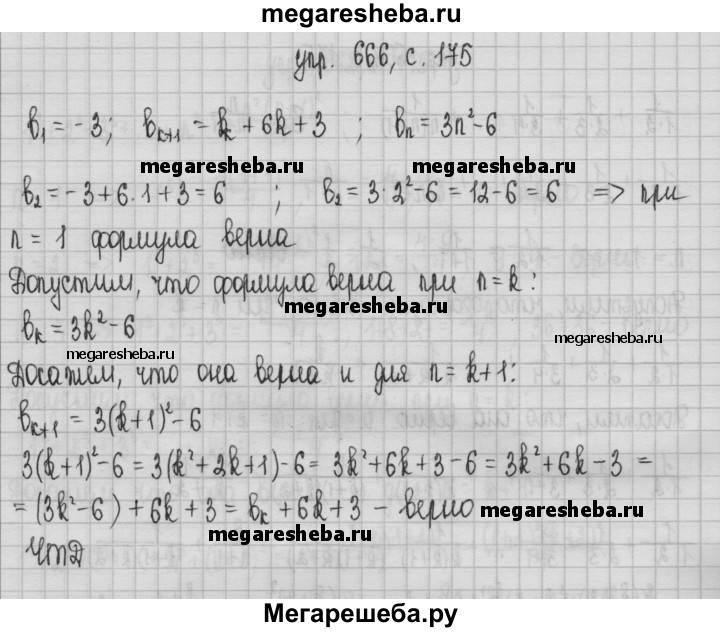 megaresheba.ru
упр. 666, с. 175
b₁ = -3; bₖ₊₁ = k + 6k + 3 ; bₙ = 3n² - 6
megaresheba.ru megaresheba.ru
b₂ = -3 + 6·1 + 3 = 6 ; b₂ = 3·2² - 6 = 12 - 6 = 6 => при
n = 1 формула верна
Допустим, что формула верна при n = k:
megaresheba.ru
bₖ = 3k² - 6
megaresheba.ru
megaresheba.ru
Докажем, что она верна и для n = k+1:
bₖ₊₁ = 3(k+1)² - 6
3(k+1)² - 6 = 3(k² + 2k + 1) - 6 = 3k² + 6k + 3 - 6 = 3k² + 6k - 3 =
= (3k² - 6) + 6k + 3 = bₖ + 6k + 3 - верно
megaresheba.ru
megaresheba.ru
ЧТД
Мегарешеба.ру